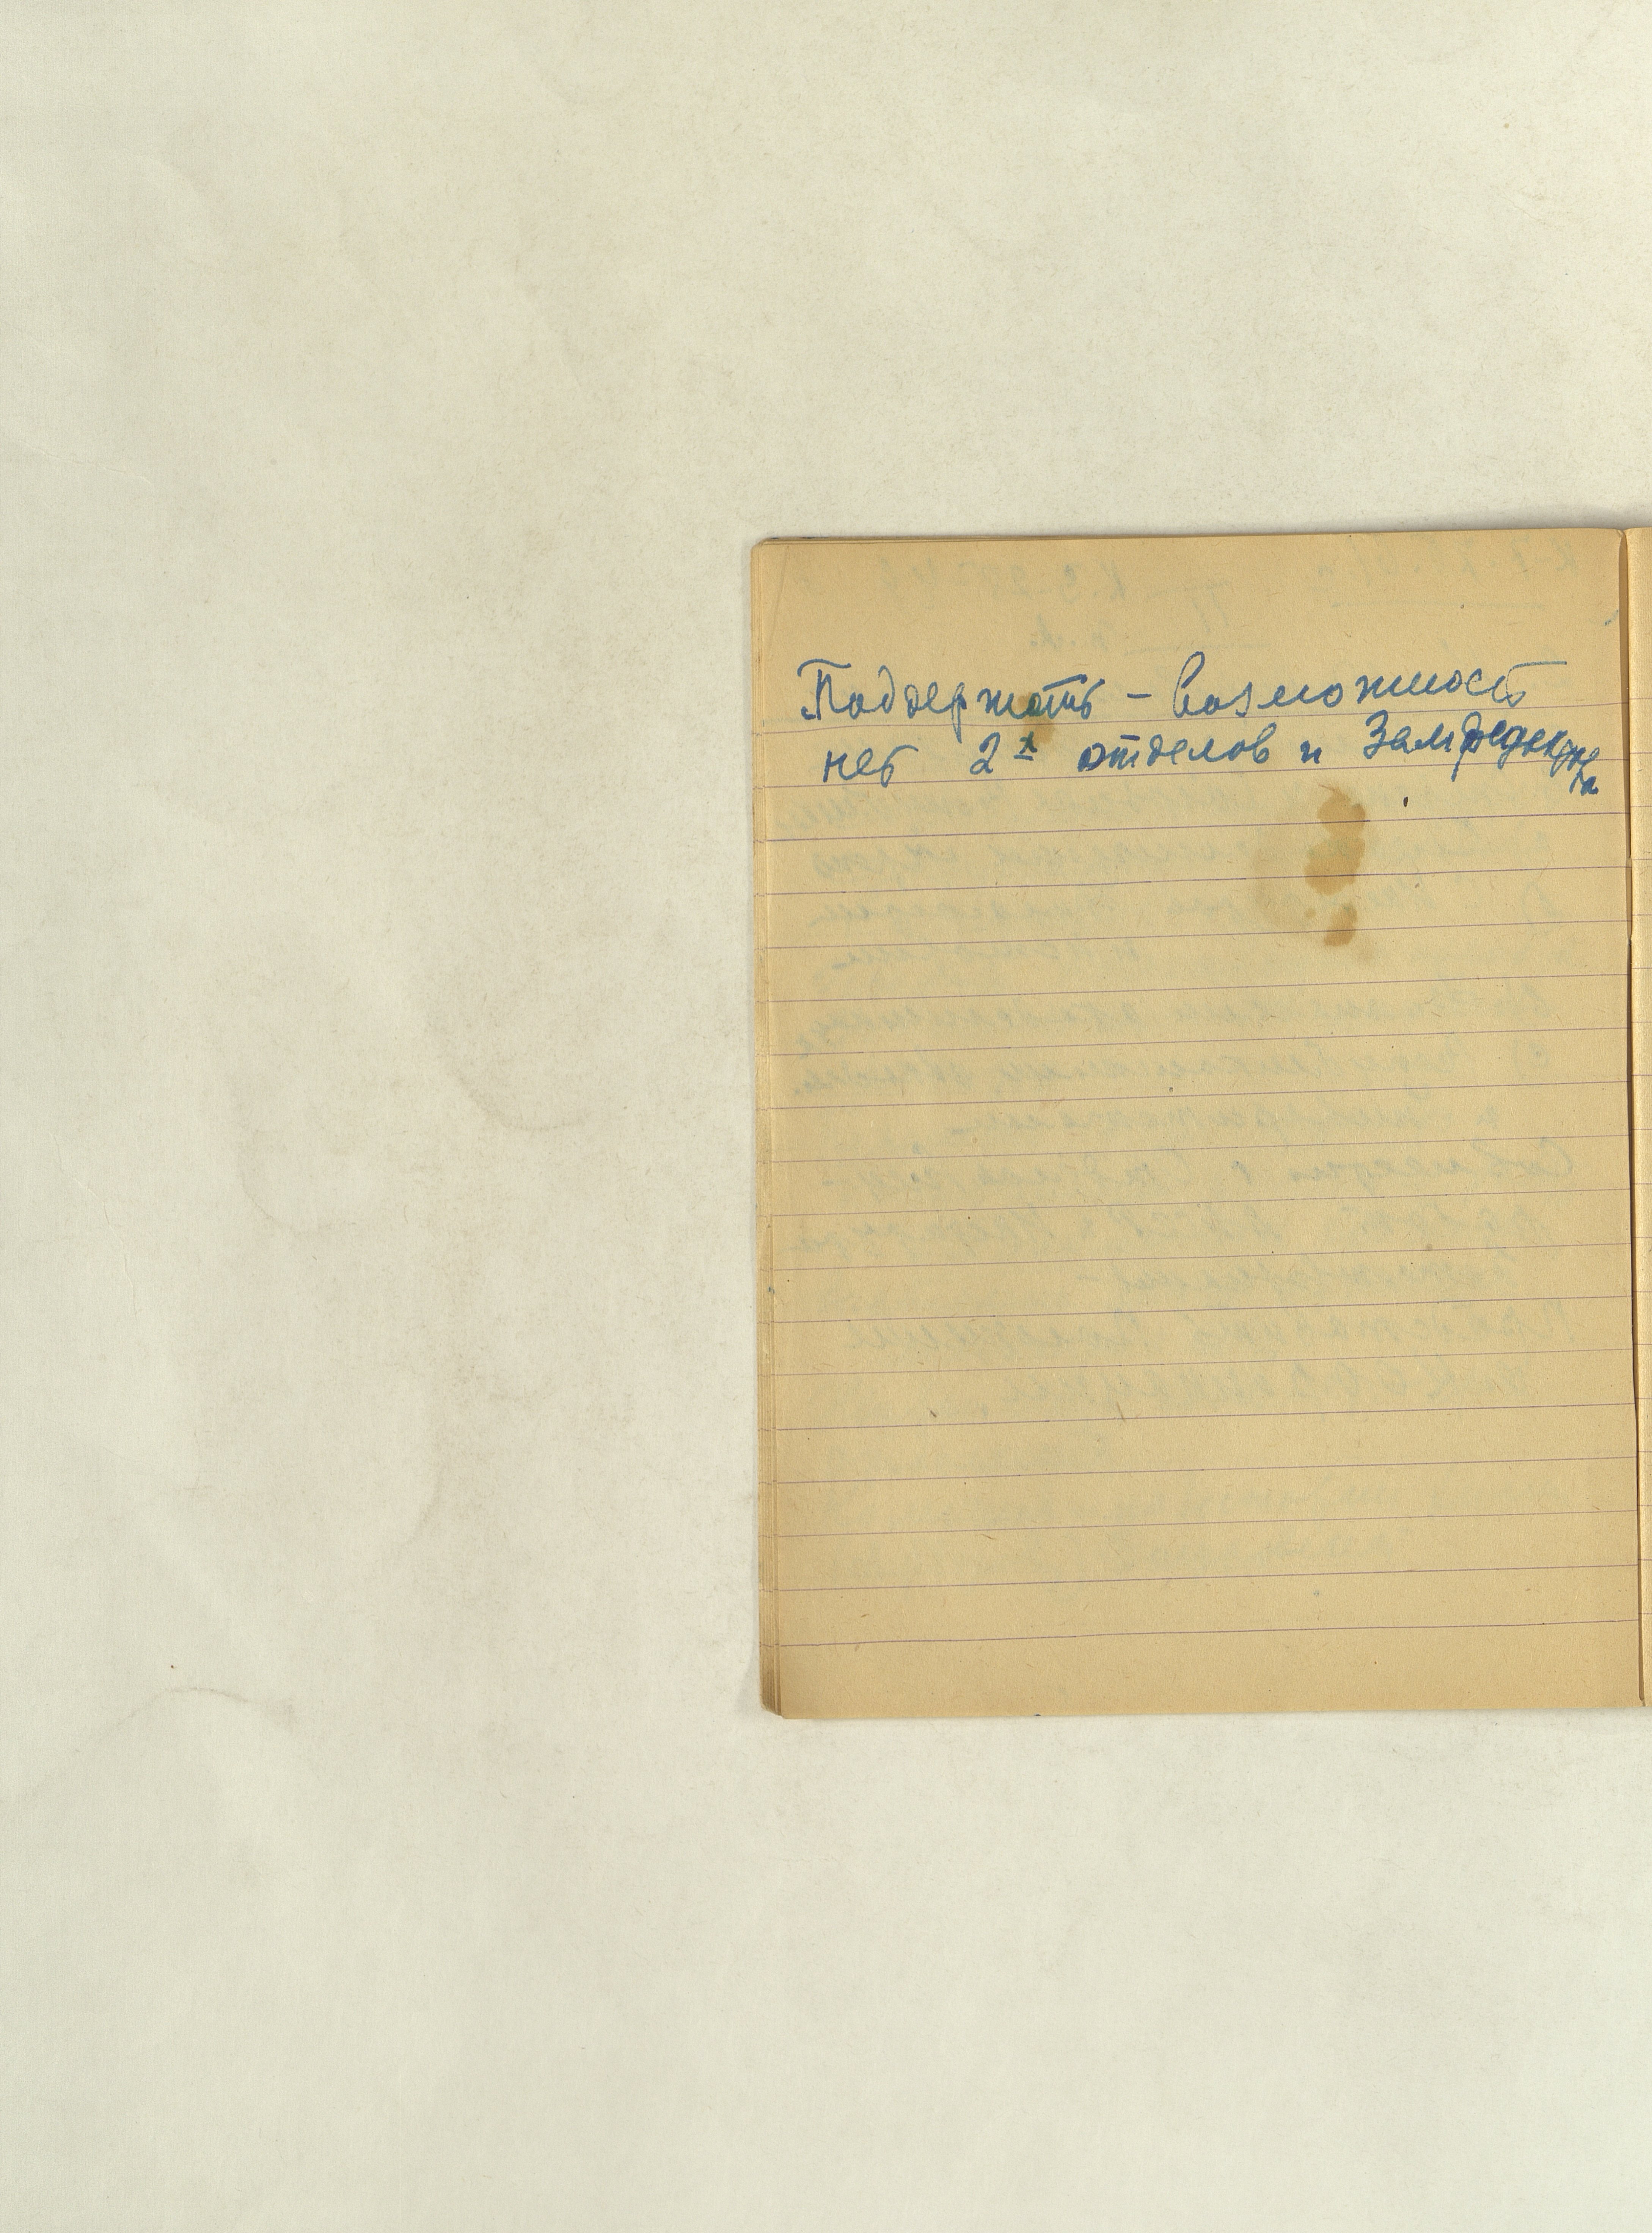 Поддержать - возможность
нет 2х отделов и Замредактора